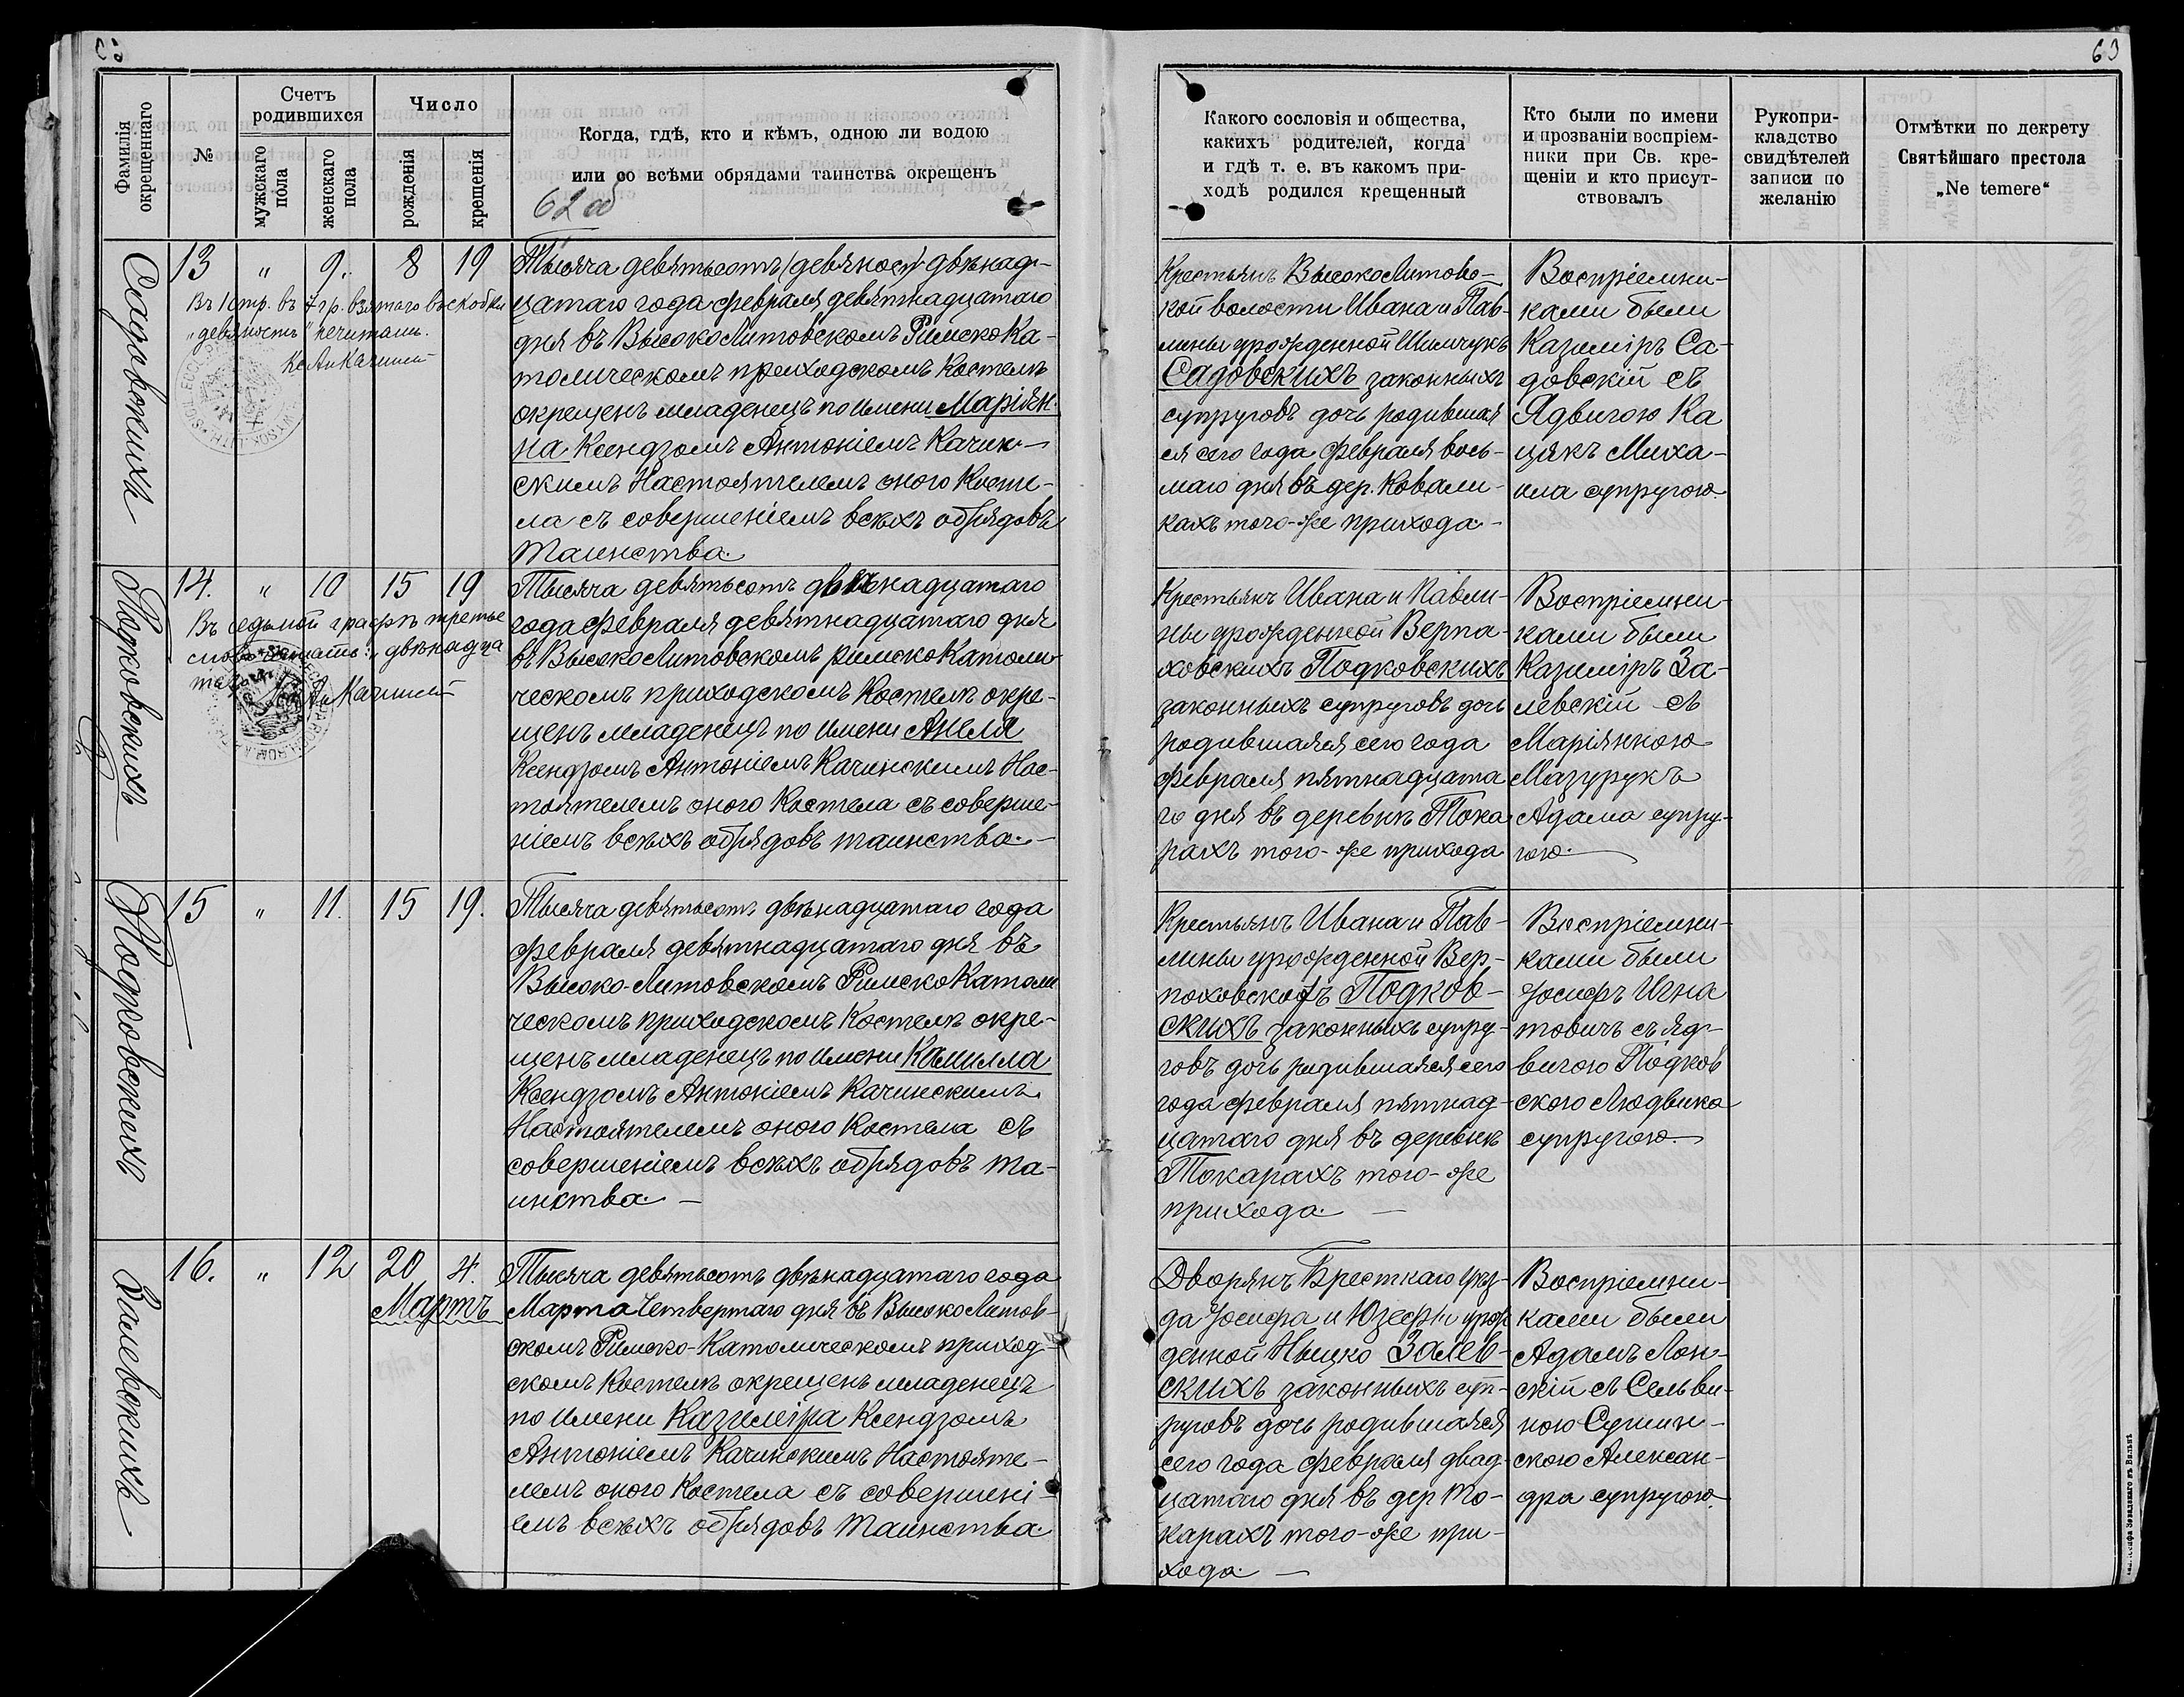 63
Фамилія
окрещеннаго
№
Счетъ
родившихся
мужскаго
пола
женскаго
пола
Число
рожденія
крещенія
Когда, гдѣ, кто и кѣмъ, одною ли водою
или со всѣми обрядами таинства окрещенъ
62 об
Какого сословія и общества,
какихъ родителей, когда
и гдѣ т. е. въ какомъ при-
ходѣ родился крещенный
Кто были по имени
и прозваніи воспріем-
ники при Св. кре-
щеніи и кто присут-
ствовалъ
Рукопри-
кладство
свидѣтелей
записи по
желанію
Отмѣтки по декрету
Святѣйшаго престола
„Ne temere“
Садовскихъ
13 „ 9. 8 19
Въ 1 стр. въ 7 гр. взятаго въ скобки
„девяность" нечитать.
Кс Ан Качинскій
Тысяча девятьсотъ (девяност) двѣнад-
цатаго года февраля девятнадцатаго
дня въ Высоко Литовскомъ Римско Ка-
толическомъ приходскомъ Костелѣ
окрещенъ младенецъ по имени Маріян-
на Ксендзомъ Антоніемъ Качин-
скимъ Настоятелемъ оного Косте-
ла съ совершеніемъ всѣхъ обрядовъ
Таинства.
Крестьянъ Высоко Литовс-
кой волости Ивана и Пав-
лины урожденной Шимчукъ
Садовскихъ законныхъ
супруговъ дочь родившая
ся сего года февраля вось-
маго дня въ дер. Ковали-
кахъ того-же прихода-
Воспріемни-
ками были
Казиміръ Са-
довскій съ
Ядвигою Ка
цякъ Миха-
ила супругою.
Подковскихъ
14. „ 10 15 19
Въ седьмой графѣ третье
слово читать: „двѣнадца
таго" Кс Ан Качинскій
Тысяча девятьсотъ двѣнадцатаго
года февраля девятнадцатаго дня
въ Высоко Литовскомъ римско Католи
ческомъ приходскомъ Костелѣ окре-
щенъ младенецъ по имени Анеля
Ксендзомъ Антоніемъ Качинскимъ Нас-
тоятелемъ оного Костела съ соверше-
ніемъ всѣхъ обрядовъ таинства.-
Крестьянъ Ивана и Павли-
ны урожденной Верпа-
ховскихъ Подковскихъ
законныхъ супруговъ дочь
родившаяся сего года
февраля пятнадцата
го дня въ деревнѣ Тока
рахъ того-же прихода
Воспріемни-
ками были
Казиміръ За-
левскій съ
Маріянною
Мазурукъ
Адама супру-
гою.
Подковскихъ
15 „ 11. 15 19.
Тысяча девятьсотъ двѣнадцатаго года
февраля девятнадцатаго дня въ
Высоко-Литовскомъ Римско Католи
ческомъ приходскомъ Костелѣ окре-
щенъ младенецъ по имени Камилла
Ксендзомъ Антоніемъ Качинскимъ
Настоятелемъ оного Костела съ
совершеніемъ всѣхъ обрядовъ та-
инства. -
Крестьянъ Ивана и Пав-
лины урожденной Вер-
поховскохъ Подков-
скихъ законныхъ супру-
говъ дочь родившаяся сего
года февраля пятнад-
цатаго дня въ деревнѣ
Токарахъ того-же
прихода. -
Воспріемни-
ками были
Іосифъ Игна
товичъ съ Яд-
вигою Подков
ского Людвика
супругою.
Залевскихъ
16. „ 12 20 4.
Мартъ
Тысяча девятьсотъ двѣнадцатаго года
Марта Четвертаго дня въ Высоко Литов-
скомъ Римско-Католическомъ приход-
скомъ Костелѣ окрещенъ младенецъ
по имени Казиміра Ксендзомъ
Антоніемъ Качинскимъ Настояте-
лемъ оного Костела съ совершені-
емъ всѣхъ обрядовъ Таинства.
Дворянъ Брестскаго уѣз-
да Іосифа и Юзефы урож
денной Ныцко Залев-
скихъ законныхъ суп-
руговъ дочь родившаяся
сего года февраля двад-
цатаго дня въ дер То-
карахъ того-же при-
хода. -
Воспріемни-
ками были
Адамъ Лон-
скій съ Сельви-
ною Сушин-
скою Алексан-
дра супругою.